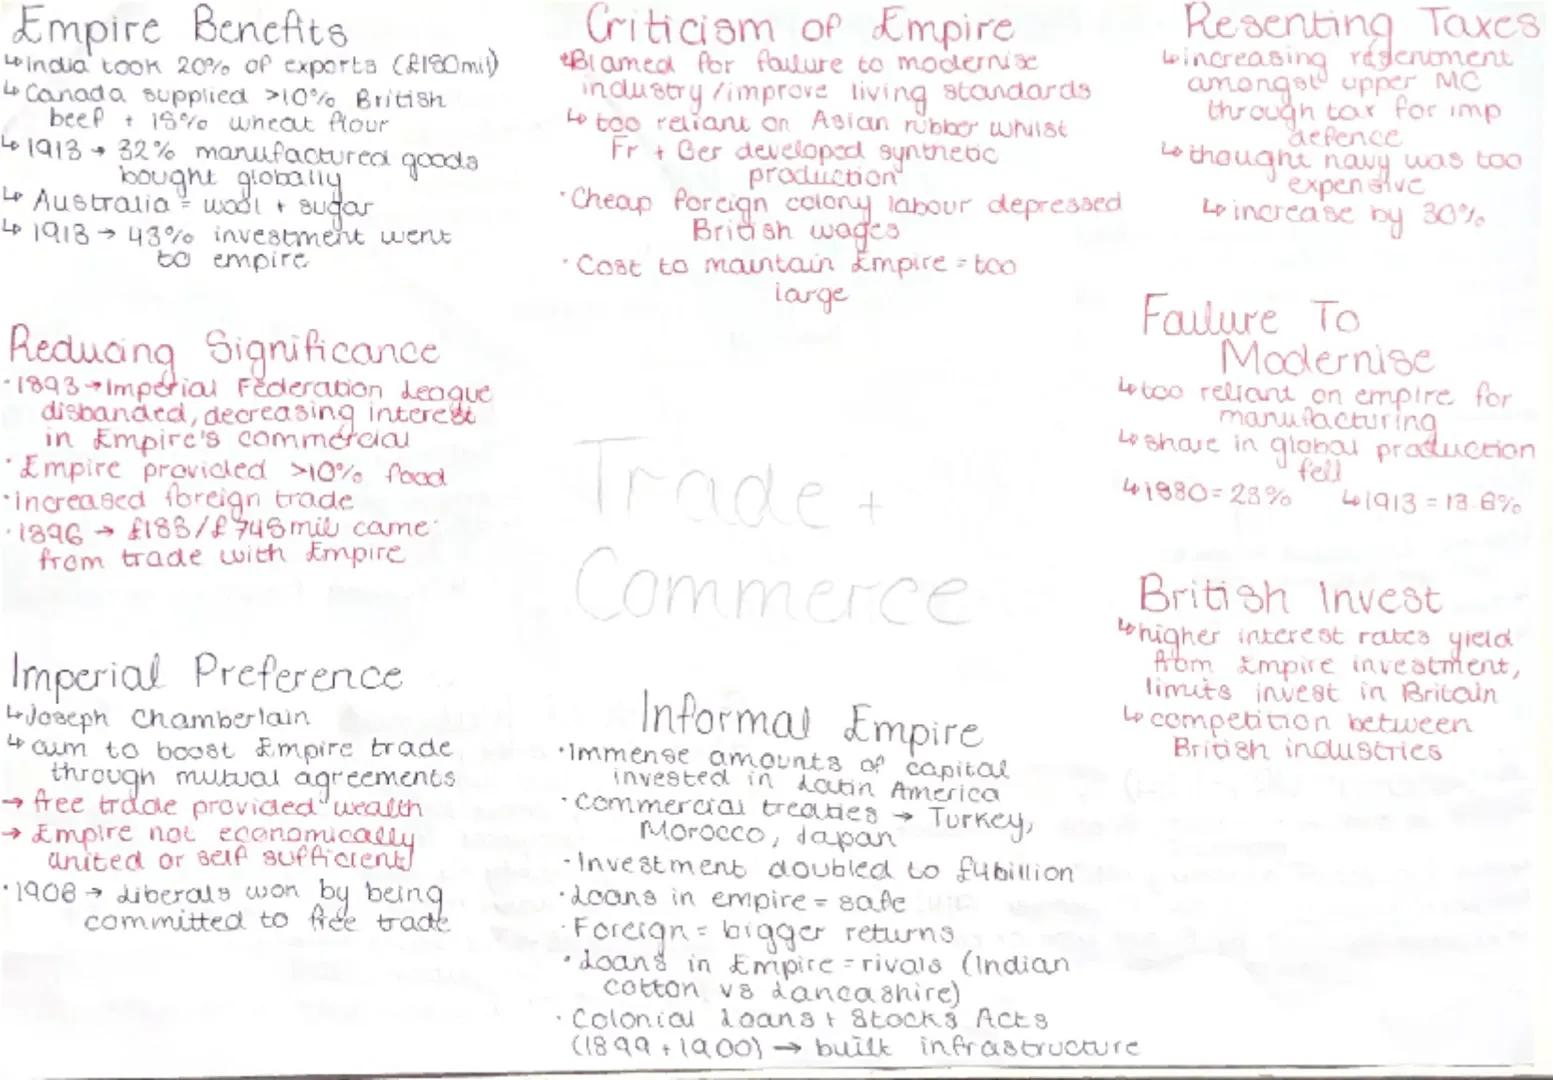 Empire Benefits
↳ India took 20% of exports (£180mil)
↳ Canada supplied >10% British
beef + 18% wheat flour
↳ 1913 → 32% manufactured goods
bought globally
↳ Australia = wool + sugar
↳ 1913 → 43% investment went
to empire
Reducing Significance
· 1893 → Imperial Federation League
disbanded, decreasing interest
in Empire's commercial
· Empire provided >10% food
· increased foreign trade
· 1896 → £183/£745mil came
from trade with Empire
Imperial Preference
↳ Joseph Chamberlain
↳ aim to boost Empire trade
through mutual agreements
→ free trade provided wealth
→ Empire not economically
united or self sufficient
· 1908 → Liberals won by being
committed to free trade
Criticism of Empire
· Blamed for failure to modernise
industry/improve living standards
↳ too reliant on Asian rubber whilst
Fr + Ger developed synthetic
production
· Cheap foreign colony labour depressed
British wages
· Cost to maintain Empire = too
large
Trade +
Commerce
Informal Empire
· Immense amounts of capital
invested in Latin America
· commercial treaties → Turkey,
Morocco, Japan
· Investment doubled to £4billion
· Loans in empire = safe
· Foreign = bigger returns
· Loans in Empire = rivals (Indian
cotton vs Lancashire)
· Colonial Loans + Stocks Acts
(1899 + 1900) → built infrastructure
Resenting Taxes
↳ increasing resentment
amongst upper MC
through tax for imp
defence
↳ thought navy was too
expensive
↳ increase by 30%
Failure To
Modernise
↳ too reliant on empire for
manufacturing
↳ share in global production
fell
↳ 1880 = 23% ↳ 1913 = 13.6%
British Invest
↳ higher interest rates yield
from Empire investment,
limits invest in Britain
↳ competition between
British industries